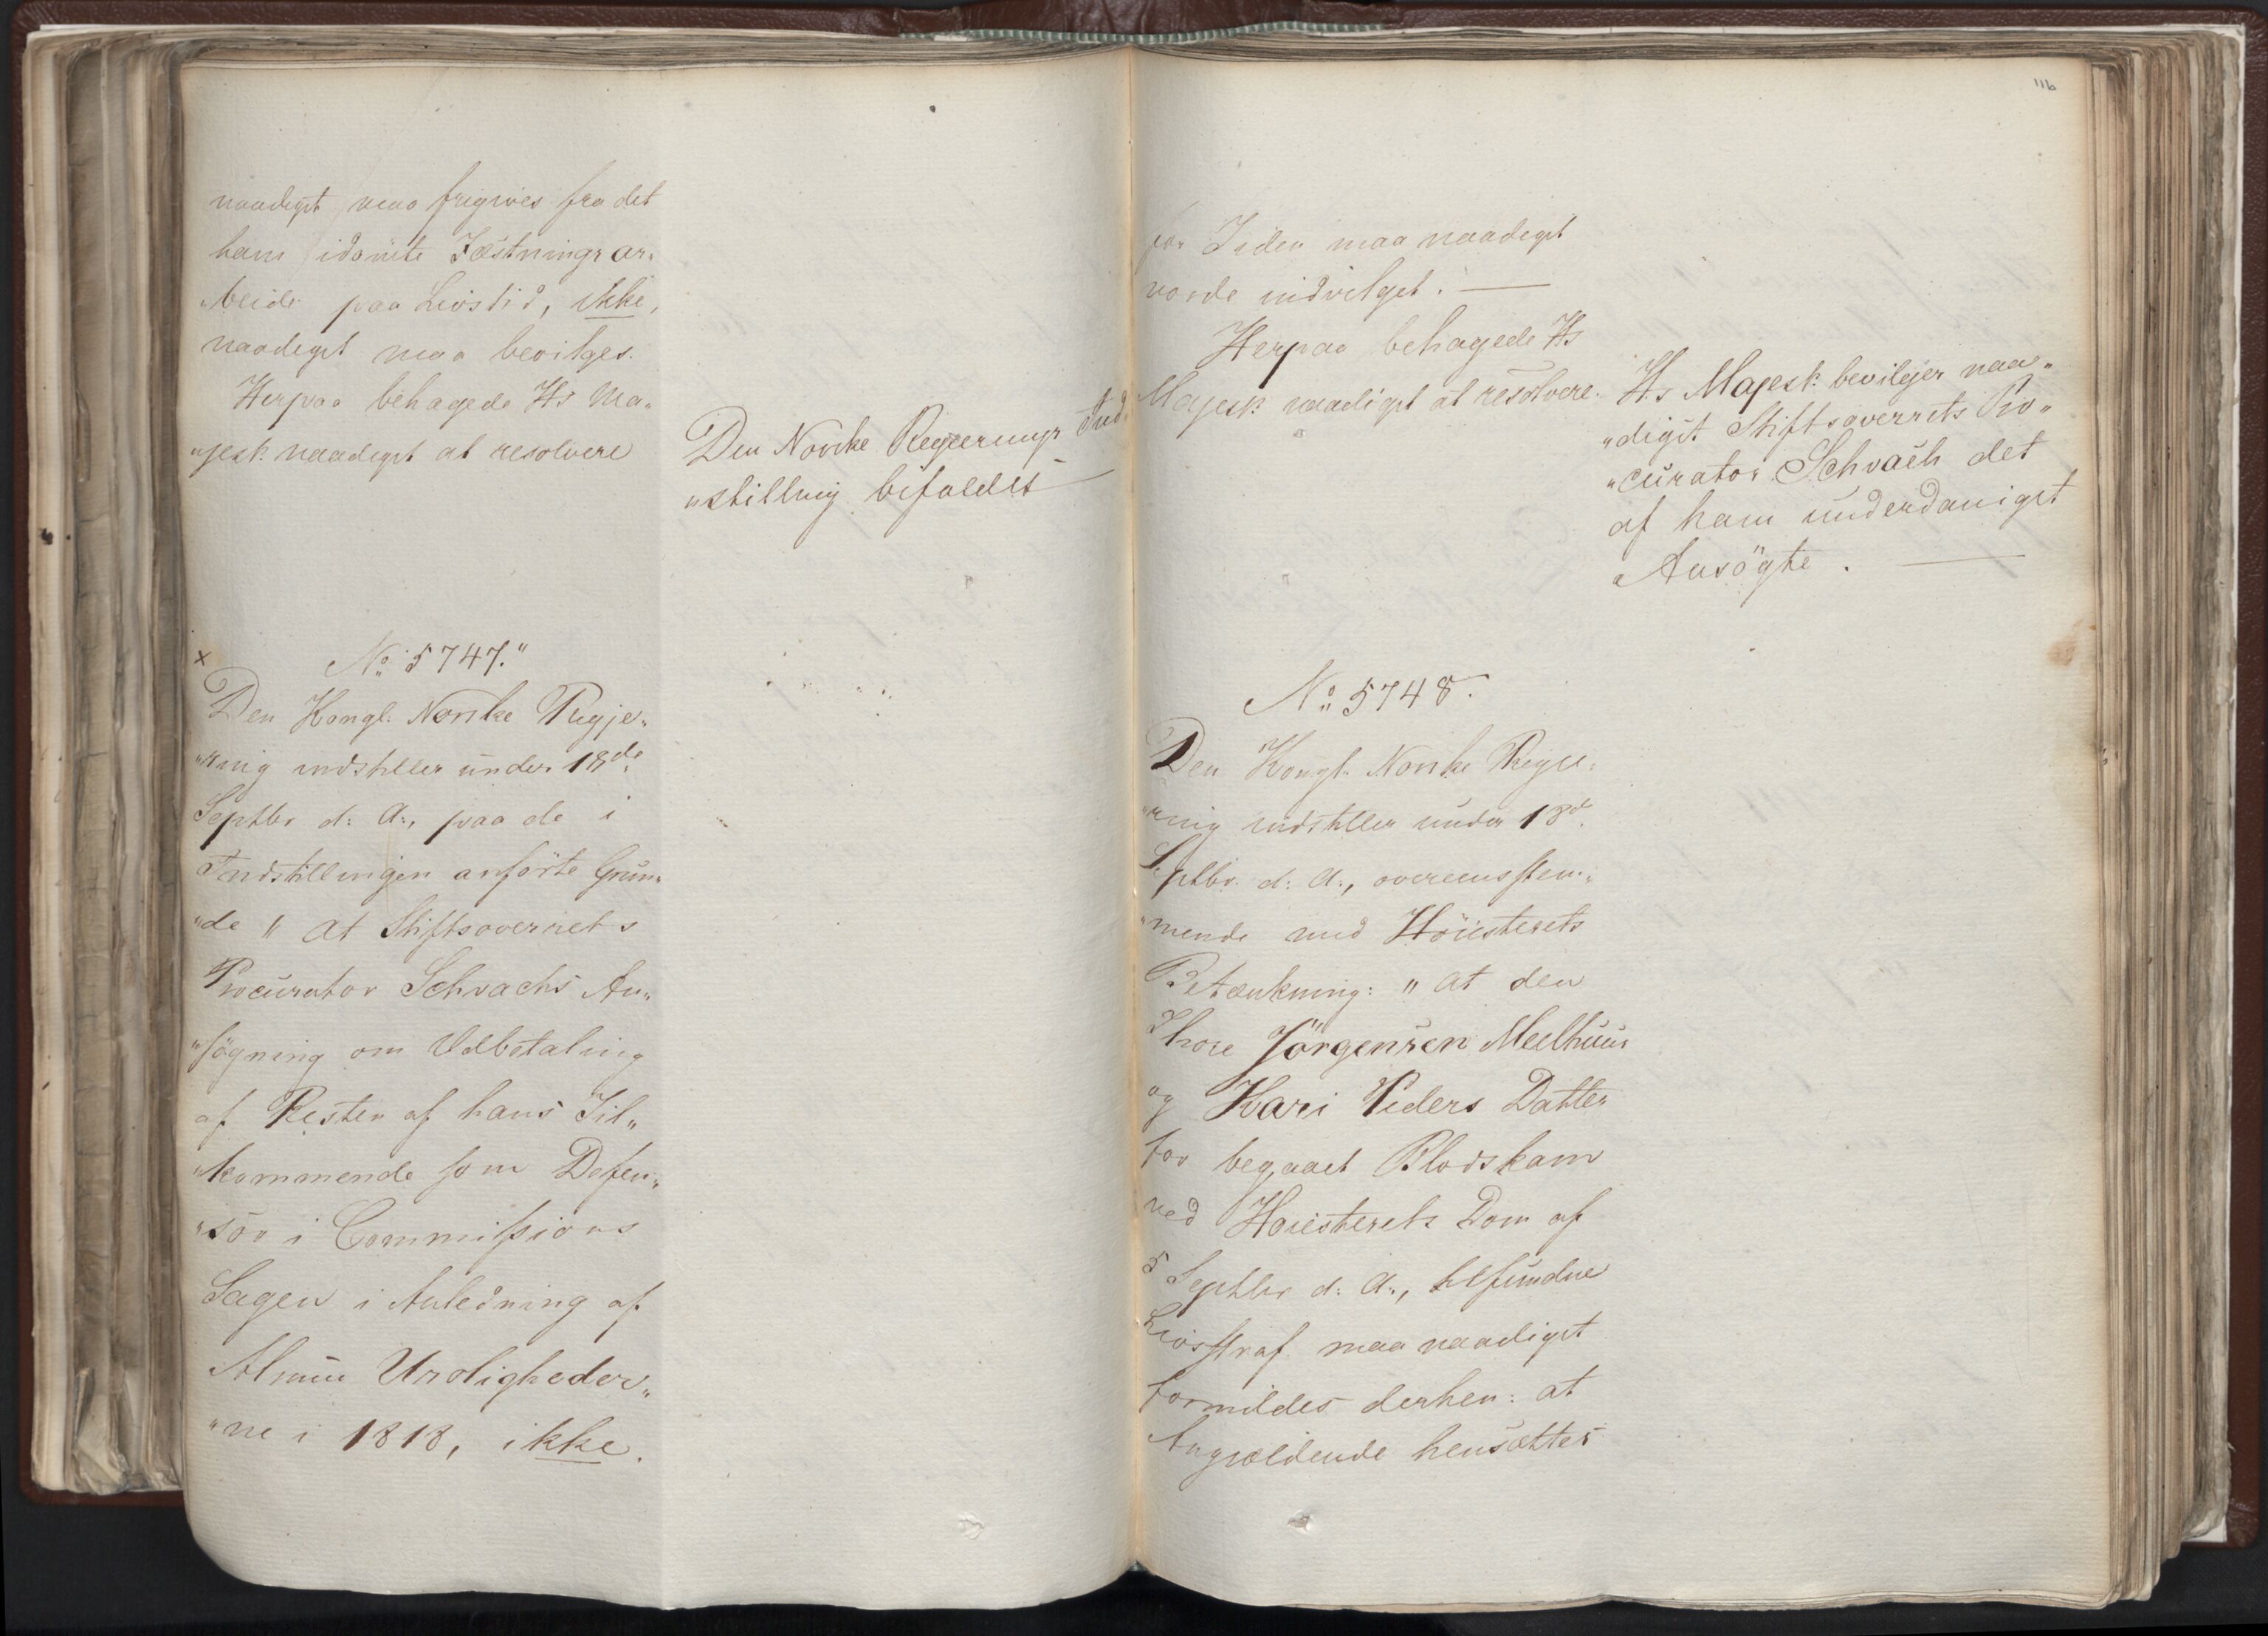 naadigst maa frigives fra det
ham idömte Fæstningsar„
„beide paa Livstid, ikke,
naadigst maa bevilges.
Herpaa behagede Hs Ma„
„jest: naadigst at resolvere
Den Norske Regjerings Ind„
„stilling bifaldes
x
No. 5747."
Den Kongl. Norske Regje„
„ring indstiller under 18de
Septbr d: A:, paa de i
Indstillingen anförte Grun„
„de " at Stiftsoverrets
Procurator Schvachs An„
„sögning om Udbetaling
af Resten af hans Til„
„kommende som Defen„
„sor i Commissions
Sagen i Anledning af
Almue Uroligheder„
„ne i 1818, ikke.
116
for Tiden maa naadigst
vorde indvilget. —
Herpaa behagede Hs
Majest: naadigst at resolvere.
Hs Majest: bevilger naa„
„digst Stiftsoverrets Pro„
„curator Schvach det
af ham underdanigst
Ansögte. —
No. 5748.
Den Kongl. Norske Regje„
„ring indstiller under 18de
Septbr. d: A:, overeensstem„
„mende med Höiesterets
Betænkning: " at den
Thore Jörgensen Meelhuus
og Kari Peders Datter
for begaaet Blodskam
ved Höiesterets Dom af
5 Septbr d: A:, tilfundne
Livsstraf maa naadigst
formildes derhen: at
Angjældende hensættes